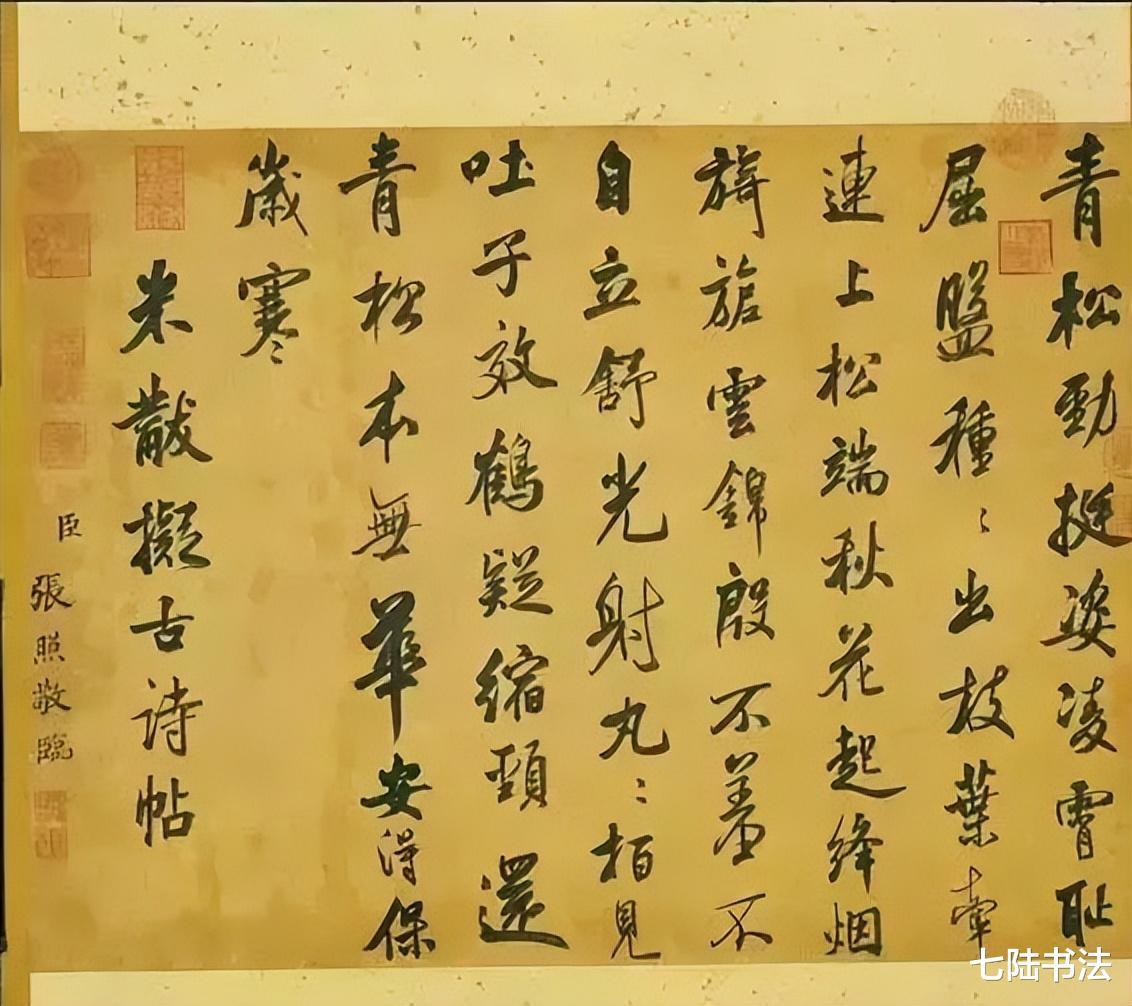 青松勁挺姿凌霄耻
屈盤種〻出枝葉牽
連上松端秋花起絳烟
旖旎雲錦殷不羞不
自立舒光射丸〻柏見
吐子效鶴疑縮頸還
青松本無華安得保
歲寒
米黻擬古詩帖
臣張照敬臨
七陆书法